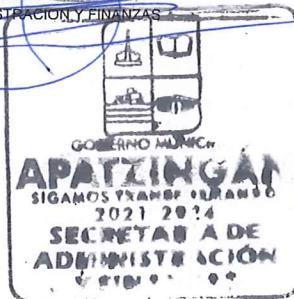 STRACIÓN Y FINANZAS
GOBIERNO MUNIC
APATZINGÁN
SIGAMOS TRANSFORMANDO
2021 2024
SECRETARÍA DE
ADMINISTRACIÓN